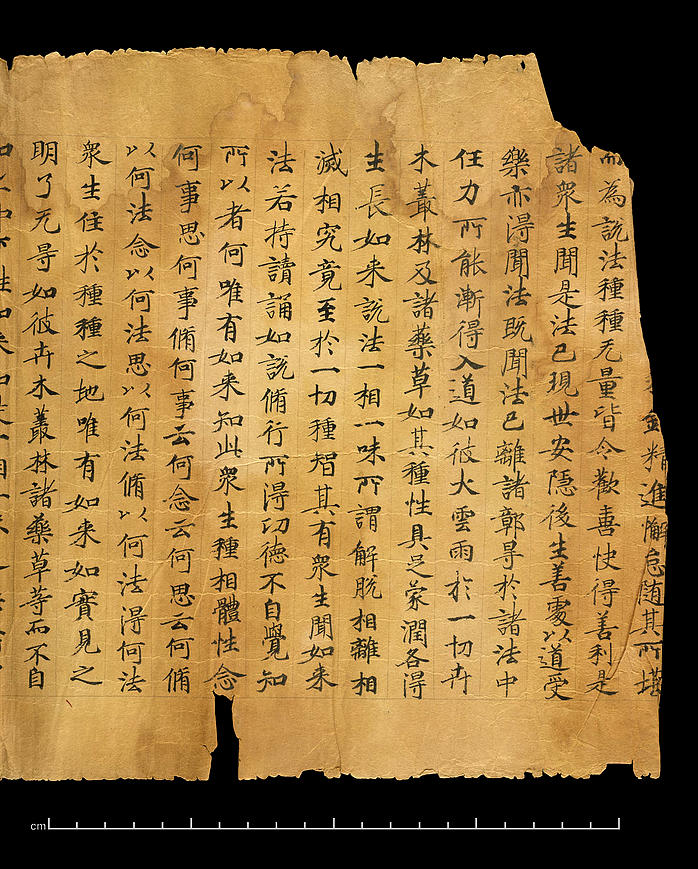 精進懈怠随其所堪
而為說法種種无量皆令歡喜快得善利是
諸衆生聞是法已現世安隱後生善處以道受
樂亦得聞法既聞法已離諸鄣㝵於諸法中
任力所能漸得入道如彼大雲雨於一切卉
木叢林及諸藥草如其種性具足蒙潤各得
生長如来說法一相一味所謂解脫相離相
滅相究竟至於一切種智其有衆生聞如来
法若持讀誦如說脩行所得功德不自覺知
所以者何唯有如来知此衆生種相體性念
何事思何事脩何事云何念云何思云何脩
以何法念以何法思以何法脩以何法得何法
衆生住於種種之地唯有如来如實見之
明了无㝵如彼卉木叢林諸藥草等而不自
cm